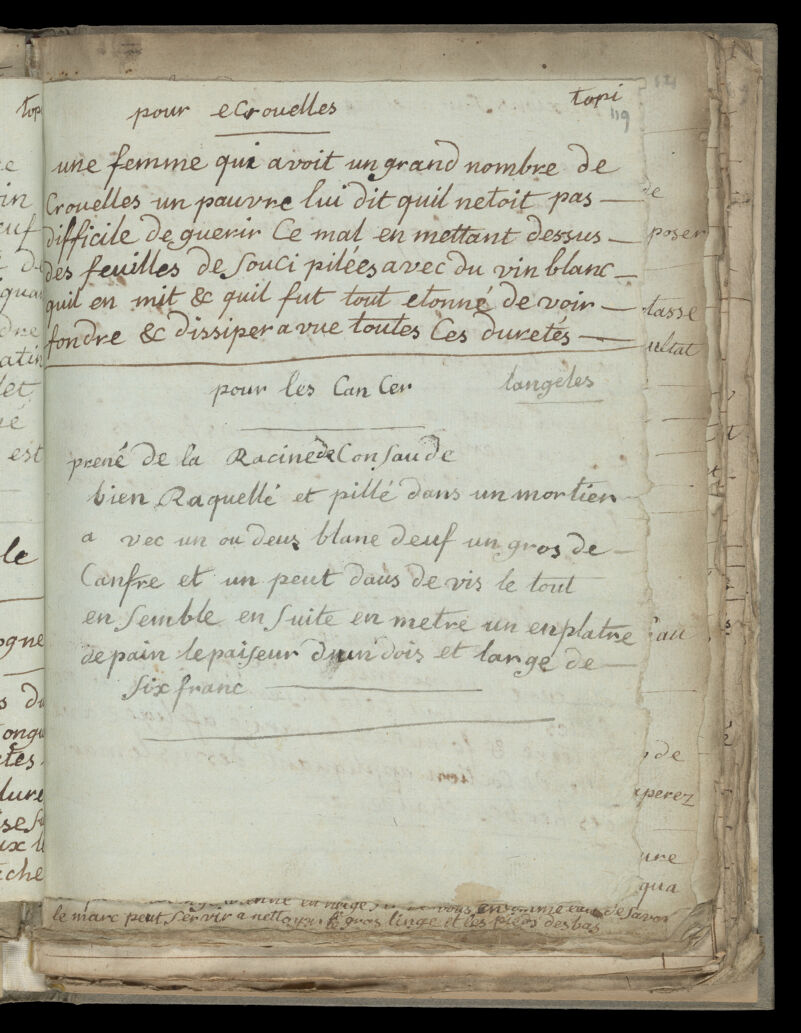 pour ecrouelles topi
119
une femme qui avoit un grand nombre de
Crouelles un pauvre lui dit quil netoit pas
difficile de guerir Ce mal en mettant dessus
des feuilles de souci pilées avec du vin blanc
quil en mit & quil fut tout etonné de voir
fondre & dissiper a vue toutes Ces duretés
pour les CanCer langeles
prené de la Racine de Consaude
bien Raquellé et pillé dans un mortier
a vec un ou deux blanc deuf un gros de
Canfre et un peut daus de vis le tout
en semble en suite en metre un enplatre
de pain lepaiseur dun dois et large de
six franc
de
poser
tasse
ultat
eau
de
perez
ure
qua
le marc peut servir a nettoyer le gros linge et les pieds des bas